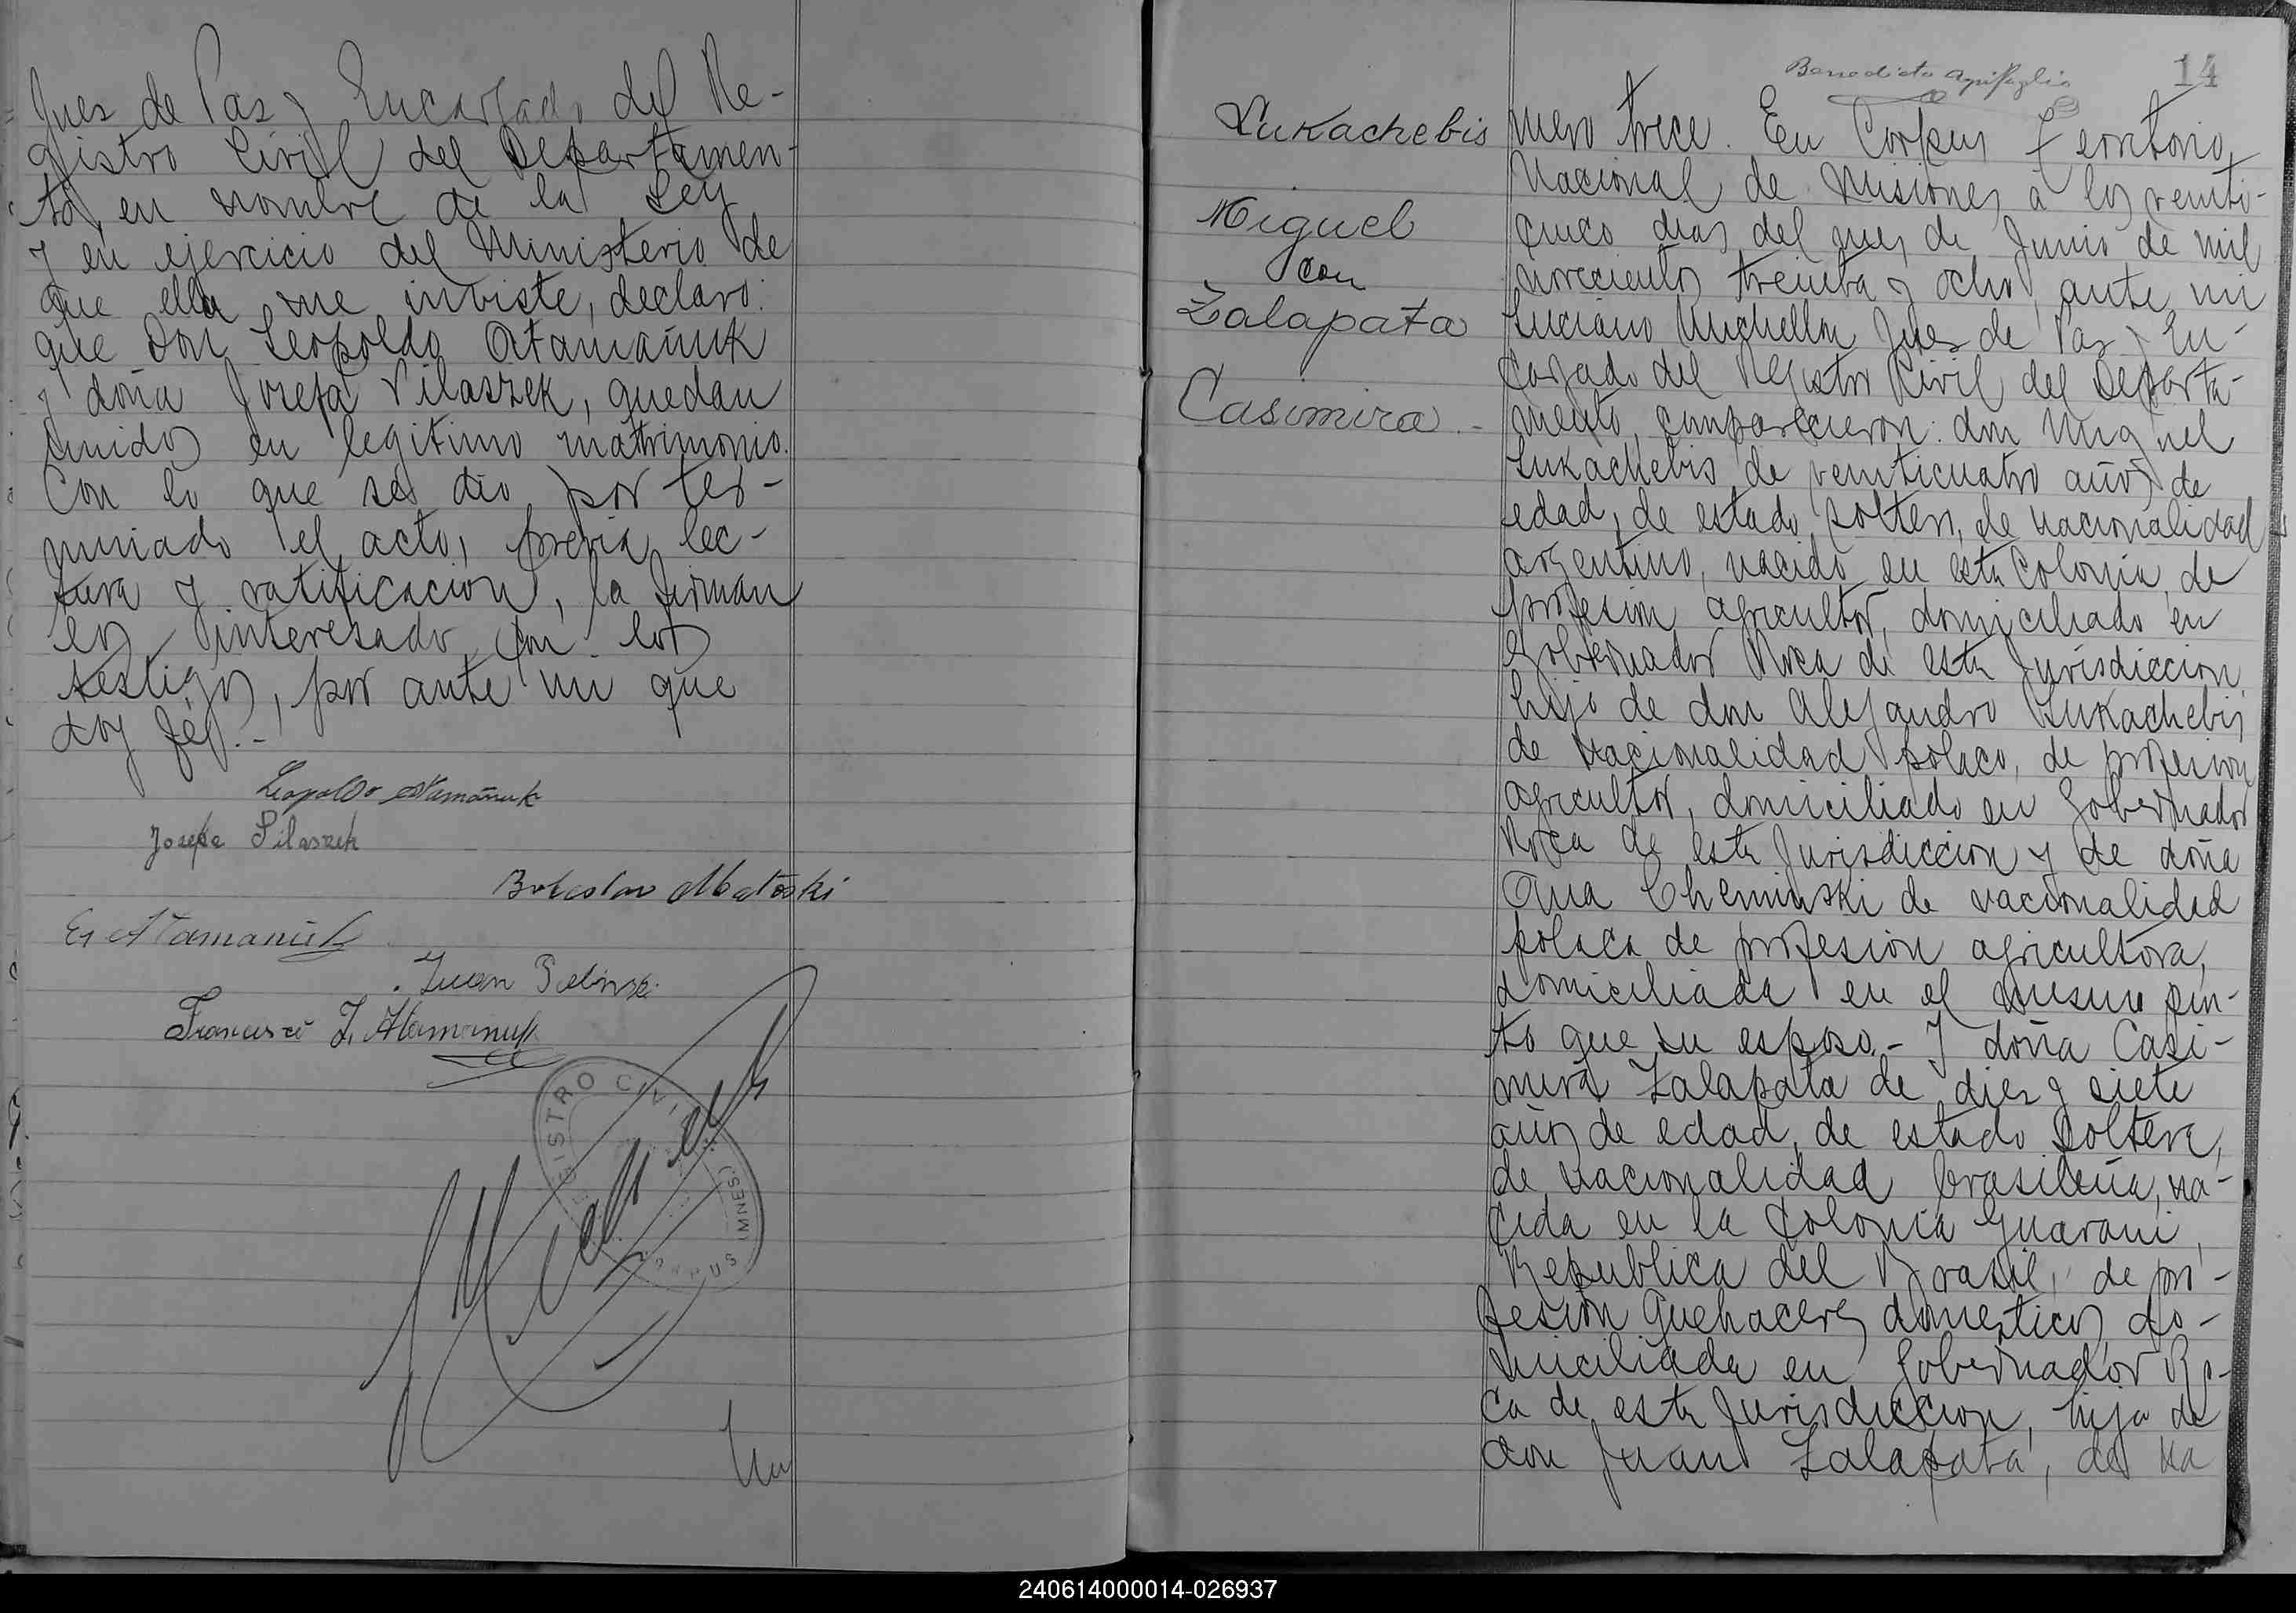 Juez de Paz y Encargado del Re-
gistro Civil del Departamen-
to, en nombre de la Ley
y en ejercicio del Ministerio de
que ella me inviste, declaro:
que Don Leopoldo Atamañuk
y doña Josefa Pilaszek, quedan
unidos en legitimo matrimonio.
Con lo que se dio por ter-
miniado el acto, previa lec-
tura y ratificacion, la firman
los interesado con los
testigos, por ante mi que
doy fé.-
Leopoldo Atamañuk
Josefa Pilaszek
Boleslao
E. Atamaniuk
Juan
Francisco Atamanuk
REGISTRO CIVIL
CORPUS (MNES.)
Nu
14
Benedicto
Lukachebis
Miguel
con
Zalapata
Casimira.-
mero trece. En Corpus Territorio
Nacional de Misiones a los veinti-
cinco dias del mes de Junio de mil
novecientos treinta y ocho, ante mi
Luciano Juez de Paz y En-
cargado del Registro Civil del Departa-
mento, comparecieron: don Miguel
Lukachebis de veinticuatro años de
edad, de estado soltero, de nacionalidad
argentino, nacido en esta Colonia, de
profesion agricultor, domiciliado en
Gobernador Roca de esta Jurisdiccion,
hijo de don Alejandro Lukachebis
de nacionalidad polaco, de profesion
agricultor, domiciliado en Gobernador
Roca de esta Jurisdiccion y de doña
Ana Cheminski de nacionalidad
polaca de profesion agricultora,
domiciliada en el mismo pun-
to que su esposo.- Y doña Casi-
mira Zalapata de diez y siete
años de edad, de estado soltera,
de nacionalidad brasileña, na-
cida en la Colonia Guarani,
Republica del Brasil, de pro-
fesion quehaceres domesticos, do-
miciliada en Gobernador Ro-
ca de esta Jurisdiccion, hija de
don Juan Zalapata, de na
240614000014-026937